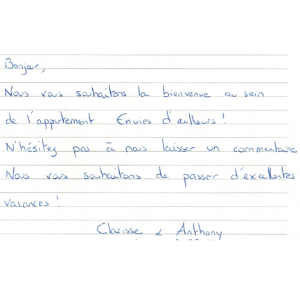 Bonjour,
Nous vous souhaitons la bienvenue au sein
de l'appartement Envies d'ailleurs !
N'hésitez pas à nous laisser un commentaire
Nous vous souhaitons de passer d'excellentes
vacances !
Clarisse & Anthony